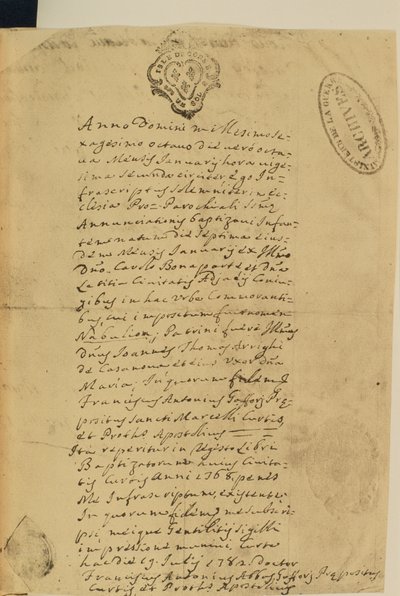 ISLE DE CORSE
ARCHIVES
DE LA GUERRE
Anno Domini millesimo se-
xagesimo octavo die verò octa-
va Mensis Januarij hora vige-
sima secunda circiter ego In-
frascriptus solemniter in Ec-
clesia Pro Parochiali Smæ
Annunciationis baptizavi Infan-
tem natum die septima eius-
dem Mensis Januarij ex Illmo
Dno. Carolo Bonaparte et Dna
Letitia Civitatis Adjacij Coniu-
gibus in hac Urbe Commoranti-
bus cui impositum fuit nomen
Nabulion; Patrini fuere Illmus
Dnus Joannes Thomas Arrighi
de Casanova et eius uxor Dna
Maria; In quorum fidem
Franciscus Antonius Præ-
positus Sancti Marcelli Curtis,
et Proths. Apostolicus
Ita reperitur in Registro Libri
Baptizatorum huius Civita-
tis Anni 1768 penes
Me Infrascriptum existente
In quorum fidem me subscri-
psi, meique Gentilitij sigilli
impressione munivi, Curte
hac die 19 Julij 1782 Doctor
Franciscus Antonius Abbas Præpositus
Curtis et Proths Apostolicus